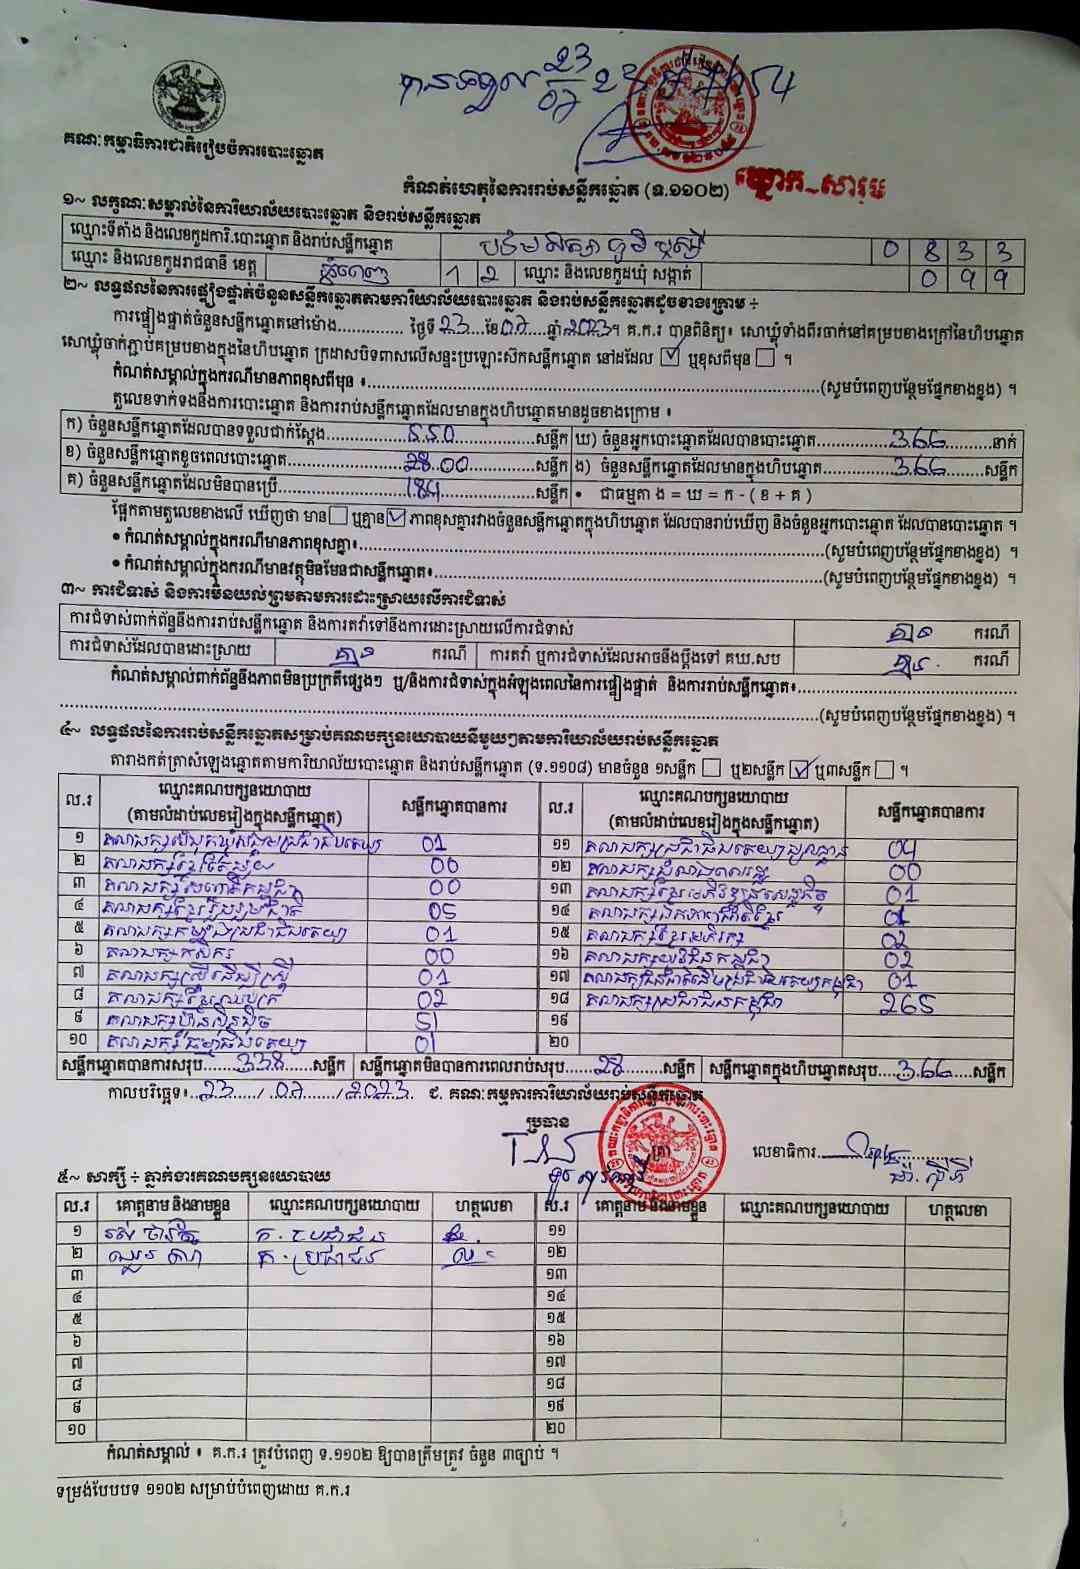 បានទទួល 23
គណៈកម្មាធិការជាតិរៀបចំការបោះឆ្នោត
កំណត់ហេតុនៃការរាប់សន្លឹកឆ្នោត (ទ.១១០២)
ឃ្លោក-សារុម
១~ លក្ខណៈសម្គាល់នៃការិយាល័យបោះឆ្នោត និងរាប់សន្លឹកឆ្នោត
ឈ្មោះទីតាំង និងលេខកូដការិ.បោះឆ្នោត និងរាប់សន្លឹកឆ្នោត 0 8 3 3
ឈ្មោះ និងលេខកូដរាជធានី ខេត្ត ភ្នំពេញ 1 2 ឈ្មោះ និងលេខកូដឃុំ សង្កាត់ 0 9 9
២~ លទ្ធផលនៃការផ្ទៀងផ្ទាត់ចំនួនសន្លឹកឆ្នោតតាមការិយាល័យបោះឆ្នោត និងរាប់សន្លឹកឆ្នោតដូចខាងក្រោម ÷
ការផ្ទៀងផ្ទាត់ចំនួនសន្លឹកឆ្នោតនៅម៉ោង.............. ថ្ងៃទី 23 ខែ 07 ឆ្នាំ 2023។ គ.ក.រ បានពិនិត្យ៖ សោឃ្លុំទាំងពីរចាក់នៅគម្របខាងក្រៅនៃហិបឆ្នោត
សោឃ្លុំចាក់ភ្ជាប់គម្របខាងក្នុងនៃហិបឆ្នោត ក្រដាសបិទពាសលើសន្ទះប្រឡោះស៊កសន្លឹកឆ្នោត នៅដដែល ☑ ឬខុសពីមុន ☐ ។
កំណត់សម្គាល់ក្នុងករណីមានភាពខុសពីមុន ៖..............(សូមបំពេញបន្ថែមផ្នែកខាងខ្នង) ។
តួលេខទាក់ទងនឹងការបោះឆ្នោត និងការរាប់សន្លឹកឆ្នោតដែលមានក្នុងហិបឆ្នោតមានដូចខាងក្រោម ៖
ក) ចំនួនសន្លឹកឆ្នោតដែលបានទទួលជាក់ស្តែង 550 សន្លឹក ឃ) ចំនួនអ្នកបោះឆ្នោតដែលបានបោះឆ្នោត 366 នាក់
ខ) ចំនួនសន្លឹកឆ្នោតខូចពេលបោះឆ្នោត 00 សន្លឹក ង) ចំនួនសន្លឹកឆ្នោតដែលមានក្នុងហិបឆ្នោត 366 សន្លឹក
គ) ចំនួនសន្លឹកឆ្នោតដែលមិនបានប្រើ 184 សន្លឹក • ជាធម្មតា ង = ឃ = ក - ( ខ + គ )
ផ្អែកតាមតួលេខខាងលើ ឃើញថា មាន ☐ ឬគ្មាន ☑ ភាពខុសគ្នារវាងចំនួនសន្លឹកឆ្នោតក្នុងហិបឆ្នោត ដែលបានរាប់ឃើញ និងចំនួនអ្នកបោះឆ្នោត ដែលបានបោះឆ្នោត ។
• កំណត់សម្គាល់ក្នុងករណីមានភាពខុសគ្នា៖..............(សូមបំពេញបន្ថែមផ្នែកខាងខ្នង) ។
• កំណត់សម្គាល់ក្នុងករណីមានវត្ថុមិនមែនជាសន្លឹកឆ្នោត៖..............(សូមបំពេញបន្ថែមផ្នែកខាងខ្នង) ។
៣~ ការជំទាស់ និងការមិនយល់ព្រមតាមការដោះស្រាយលើការជំទាស់
ការជំទាស់ពាក់ព័ន្ធនឹងការរាប់សន្លឹកឆ្នោត និងការតវ៉ាទៅនឹងការដោះស្រាយលើការជំទាស់ គ្មាន ករណី
ការជំទាស់ដែលបានដោះស្រាយ គ្មាន ករណី ការតវ៉ា ឬការជំទាស់ដែលអាចនឹងប្តឹងទៅ គឃ.សប គ្មាន ករណី
កំណត់សម្គាល់ពាក់ព័ន្ធនឹងភាពមិនប្រក្រតីផ្សេងៗ ឬ/និងការជំទាស់ក្នុងអំឡុងពេលនៃការផ្ទៀងផ្ទាត់ និងការរាប់សន្លឹកឆ្នោត៖..............
..............(សូមបំពេញបន្ថែមផ្នែកខាងខ្នង) ។
៤~ លទ្ធផលនៃការរាប់សន្លឹកឆ្នោតសម្រាប់គណបក្សនយោបាយនីមួយៗតាមការិយាល័យរាប់សន្លឹកឆ្នោត
តារាងកត់ត្រាសំឡេងឆ្នោតតាមការិយាល័យបោះឆ្នោត និងរាប់សន្លឹកឆ្នោត (ទ.១១០៨) មានចំនួន ១សន្លឹក ☐ ឬ២សន្លឹក ☑ ឬ៣សន្លឹក ☐ ។
ល.រ ឈ្មោះគណបក្សនយោបាយ (តាមលំដាប់លេខរៀងក្នុងសន្លឹកឆ្នោត) សន្លឹកឆ្នោតបានការ ល.រ ឈ្មោះគណបក្សនយោបាយ (តាមលំដាប់លេខរៀងក្នុងសន្លឹកឆ្នោត) សន្លឹកឆ្នោតបានការ
១ គណបក្សសំបុកឃ្មុំសង្គមប្រជាធិបតេយ្យ 01 ១១ គណបក្សប្រជាធិបតេយ្យមូលដ្ឋាន 04
២ 00 ១២ 00
៣ 00 ១៣ គណបក្សខ្មែរអភិវឌ្ឍន៍សេដ្ឋកិច្ច 01
៤ គណបក្សខ្មែររួបរួមជាតិ 05 ១៤ គណបក្សឯកភាពជាតិខ្មែរ
៥ គណបក្សកម្លាំងប្រជាធិបតេយ្យ 01 ១៥ គណបក្សខ្មែរអភិរក្ស 02
៦ គណបក្សកសិករ 00 ១៦ គណបក្សយុវជនកម្ពុជា 02
៧ គណបក្សស្ត្រីដើម្បីស្ត្រី 01 ១៧ 01
៨ គណបក្សខ្មែរឈប់ក្រ 02 ១៨ គណបក្សប្រជាជនកម្ពុជា 265
៩ គណបក្សហ៊្វុនស៊ិនប៉ិច 51 ១៩
១០ គណបក្សធម្មាធិបតេយ្យ 01 ២០
សន្លឹកឆ្នោតបានការសរុប 338 សន្លឹក សន្លឹកឆ្នោតមិនបានការពេលរាប់សរុប 28 សន្លឹក សន្លឹកឆ្នោតក្នុងហិបឆ្នោតសរុប 366 សន្លឹក
កាលបរិច្ឆេទ៖ 23 / 07 / 2023 ជ. គណៈកម្មការការិយាល័យរាប់សន្លឹកឆ្នោត
ប្រធាន ត្រា លេខាធិការ
៥~ សាក្សី ÷ ភ្នាក់ងារគណបក្សនយោបាយ
ល.រ គោត្តនាម និងនាមខ្លួន ឈ្មោះគណបក្សនយោបាយ ហត្ថលេខា ល.រ គោត្តនាម និងនាមខ្លួន ឈ្មោះគណបក្សនយោបាយ ហត្ថលេខា
១ គ.ប្រជាជន ១១
២ គ.ប្រជាជន ១២
៣ ១៣
៤ ១៤
៥ ១៥
៦ ១៦
៧ ១៧
៨ ១៨
៩ ១៩
១០ ២០
កំណត់សម្គាល់ ៖ គ.ក.រ ត្រូវបំពេញ ទ.១១០២ ឱ្យបានត្រឹមត្រូវ ចំនួន ៣ច្បាប់ ។
ទម្រង់បែបបទ ១១០២ សម្រាប់បំពេញដោយ គ.ក.រ